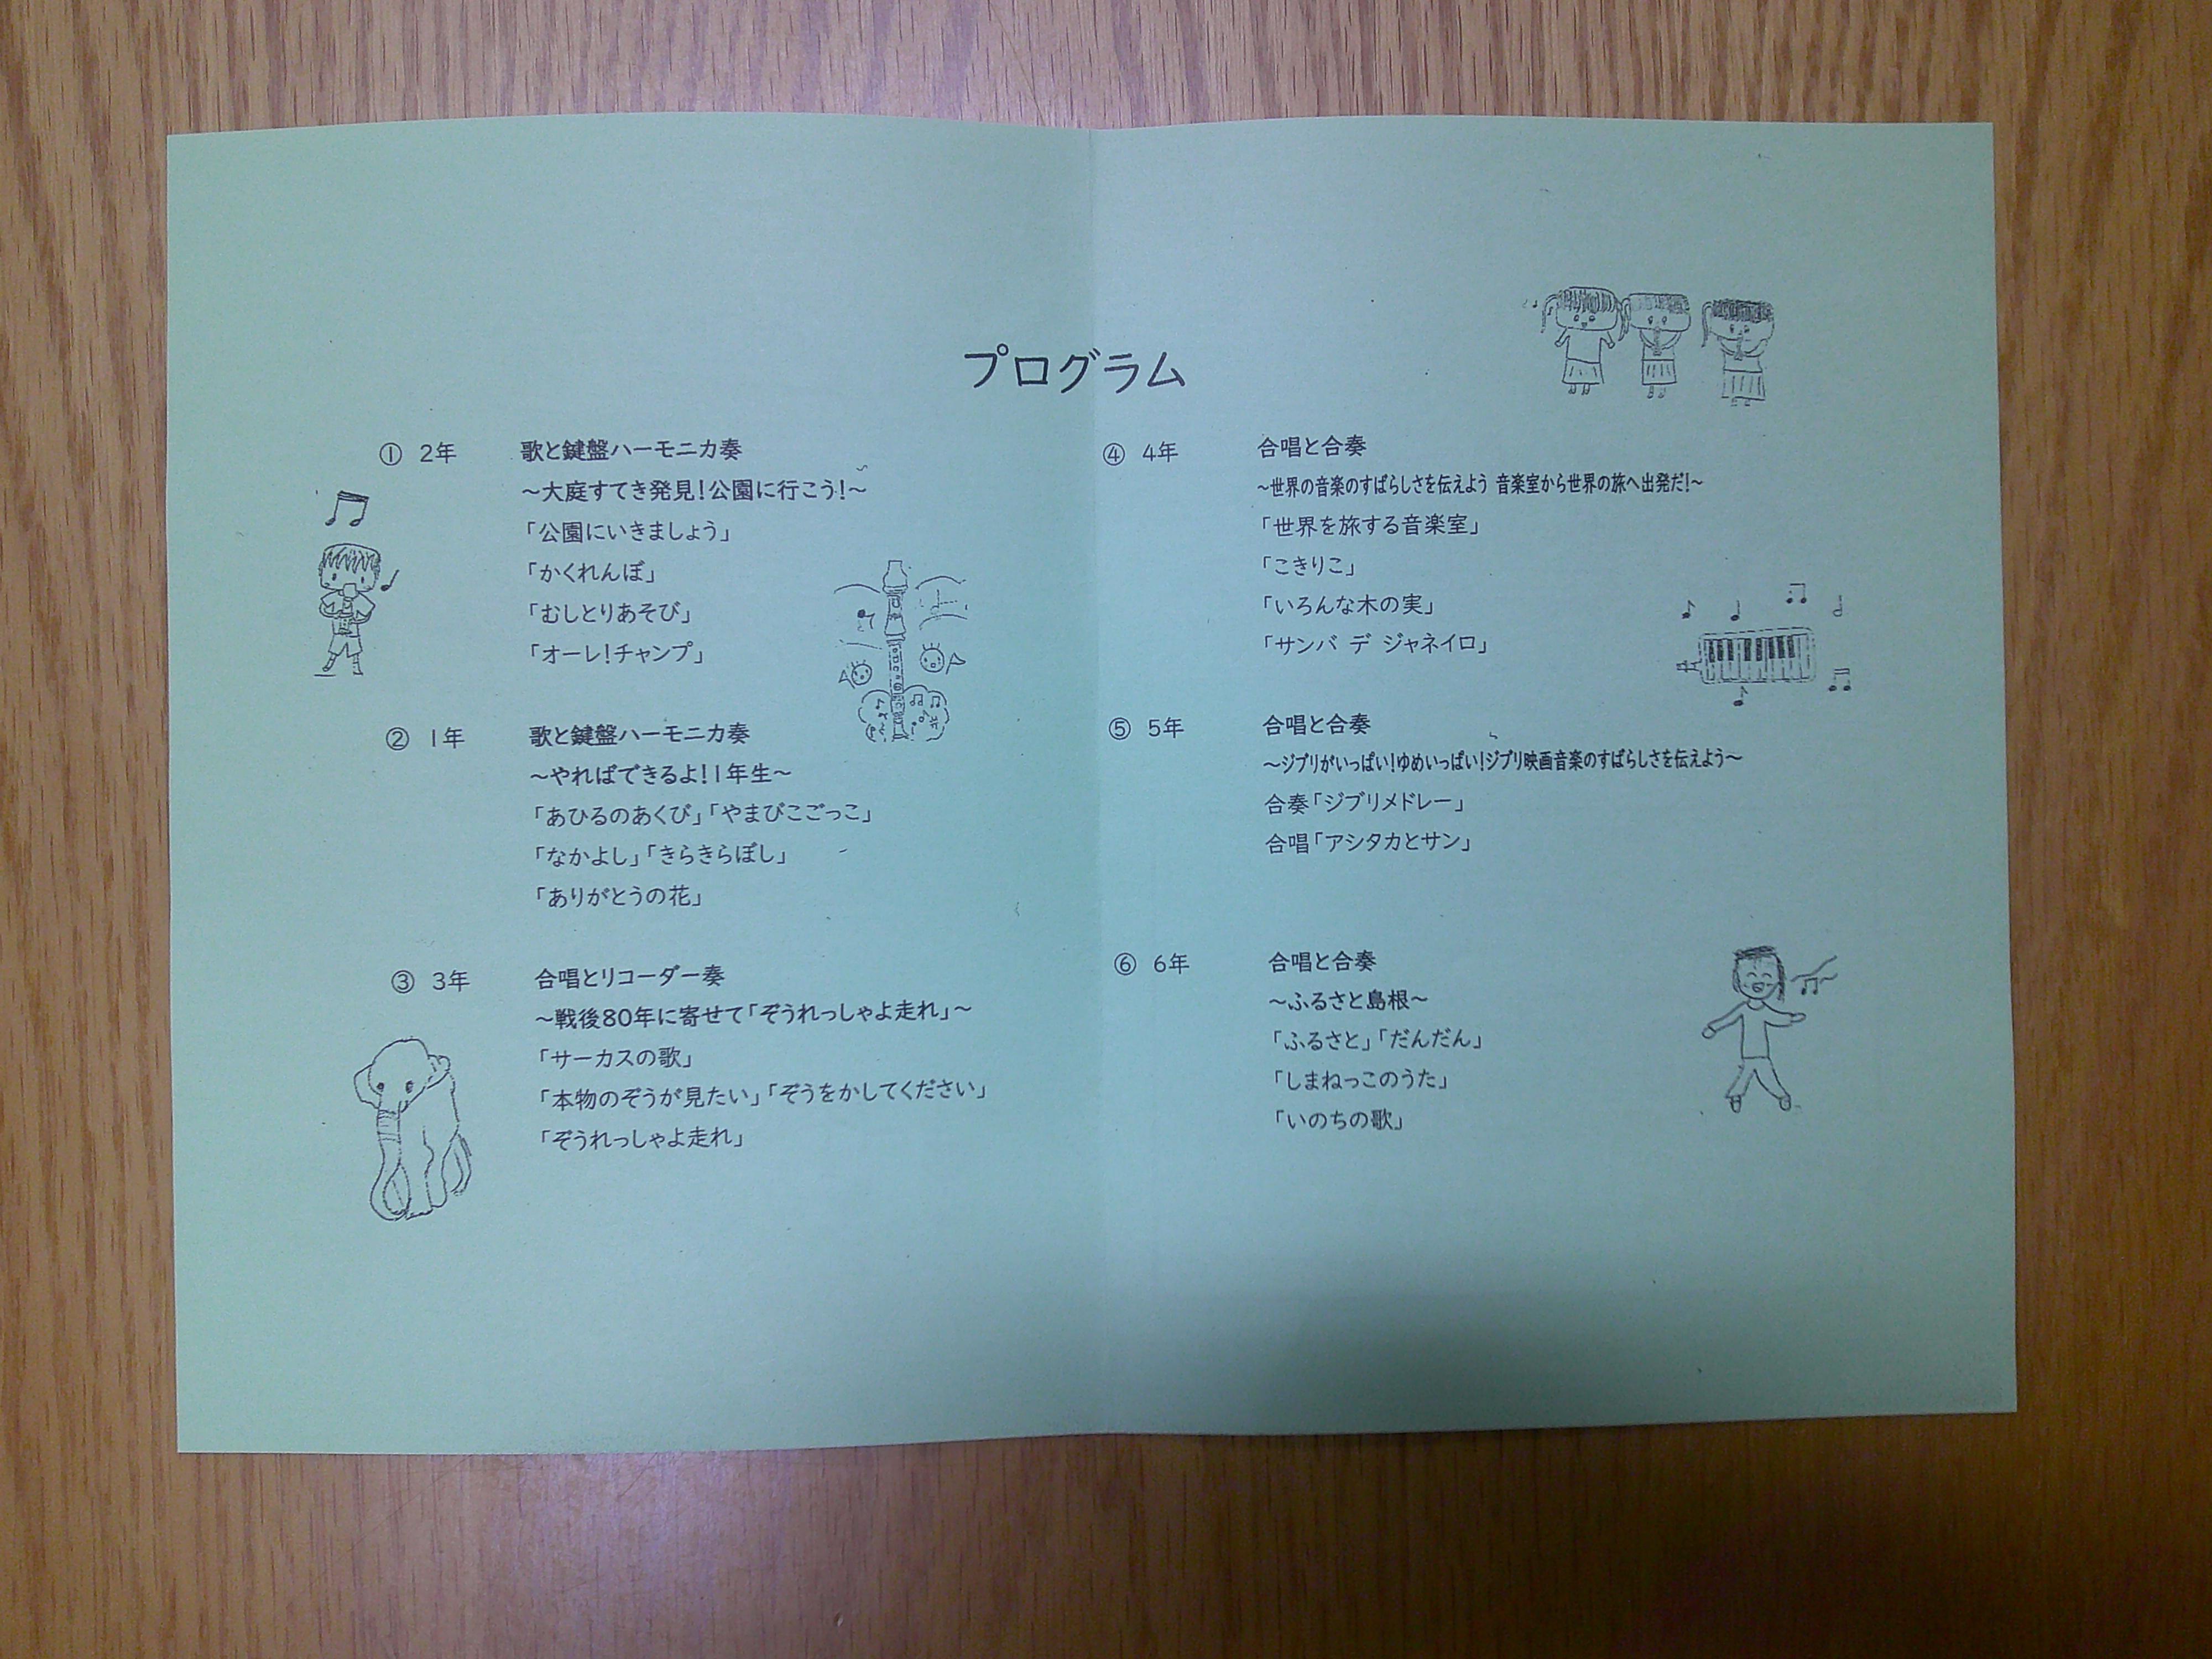 プログラム
① 2年 歌と鍵盤ハーモニカ奏
～大庭すてき発見！公園に行こう！～
「公園にいきましょう」
「かくれんぼ」
「むしとりあそび」
「オーレ！チャンプ」
② 1年 歌と鍵盤ハーモニカ奏
～やればできるよ！1年生～
「あひるのあくび」「やまびこごっこ」
「なかよし」「きらきらぼし」
「ありがとうの花」
③ 3年 合唱とリコーダー奏
～戦後80年に寄せて「ぞうれっしゃよ走れ」～
「サーカスの歌」
「本物のぞうが見たい」「ぞうをかしてください」
「ぞうれっしゃよ走れ」
④ 4年 合唱と合奏
～世界の音楽のすばらしさを伝えよう 音楽室から世界の旅へ出発だ！～
「世界を旅する音楽室」
「こきりこ」
「いろんな木の実」
「サンバ デ ジャネイロ」
⑤ 5年 合唱と合奏
～ジブリがいっぱい！ゆめいっぱい！ジブリ映画音楽のすばらしさを伝えよう～
合奏「ジブリメドレー」
合唱「アシタカとサン」
⑥ 6年 合唱と合奏
～ふるさと島根～
「ふるさと」「だんだん」
「しまねっこのうた」
「いのちの歌」